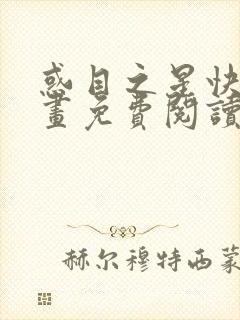 惑目之星快
畫免費閱讀
赫尔穆特西蒙